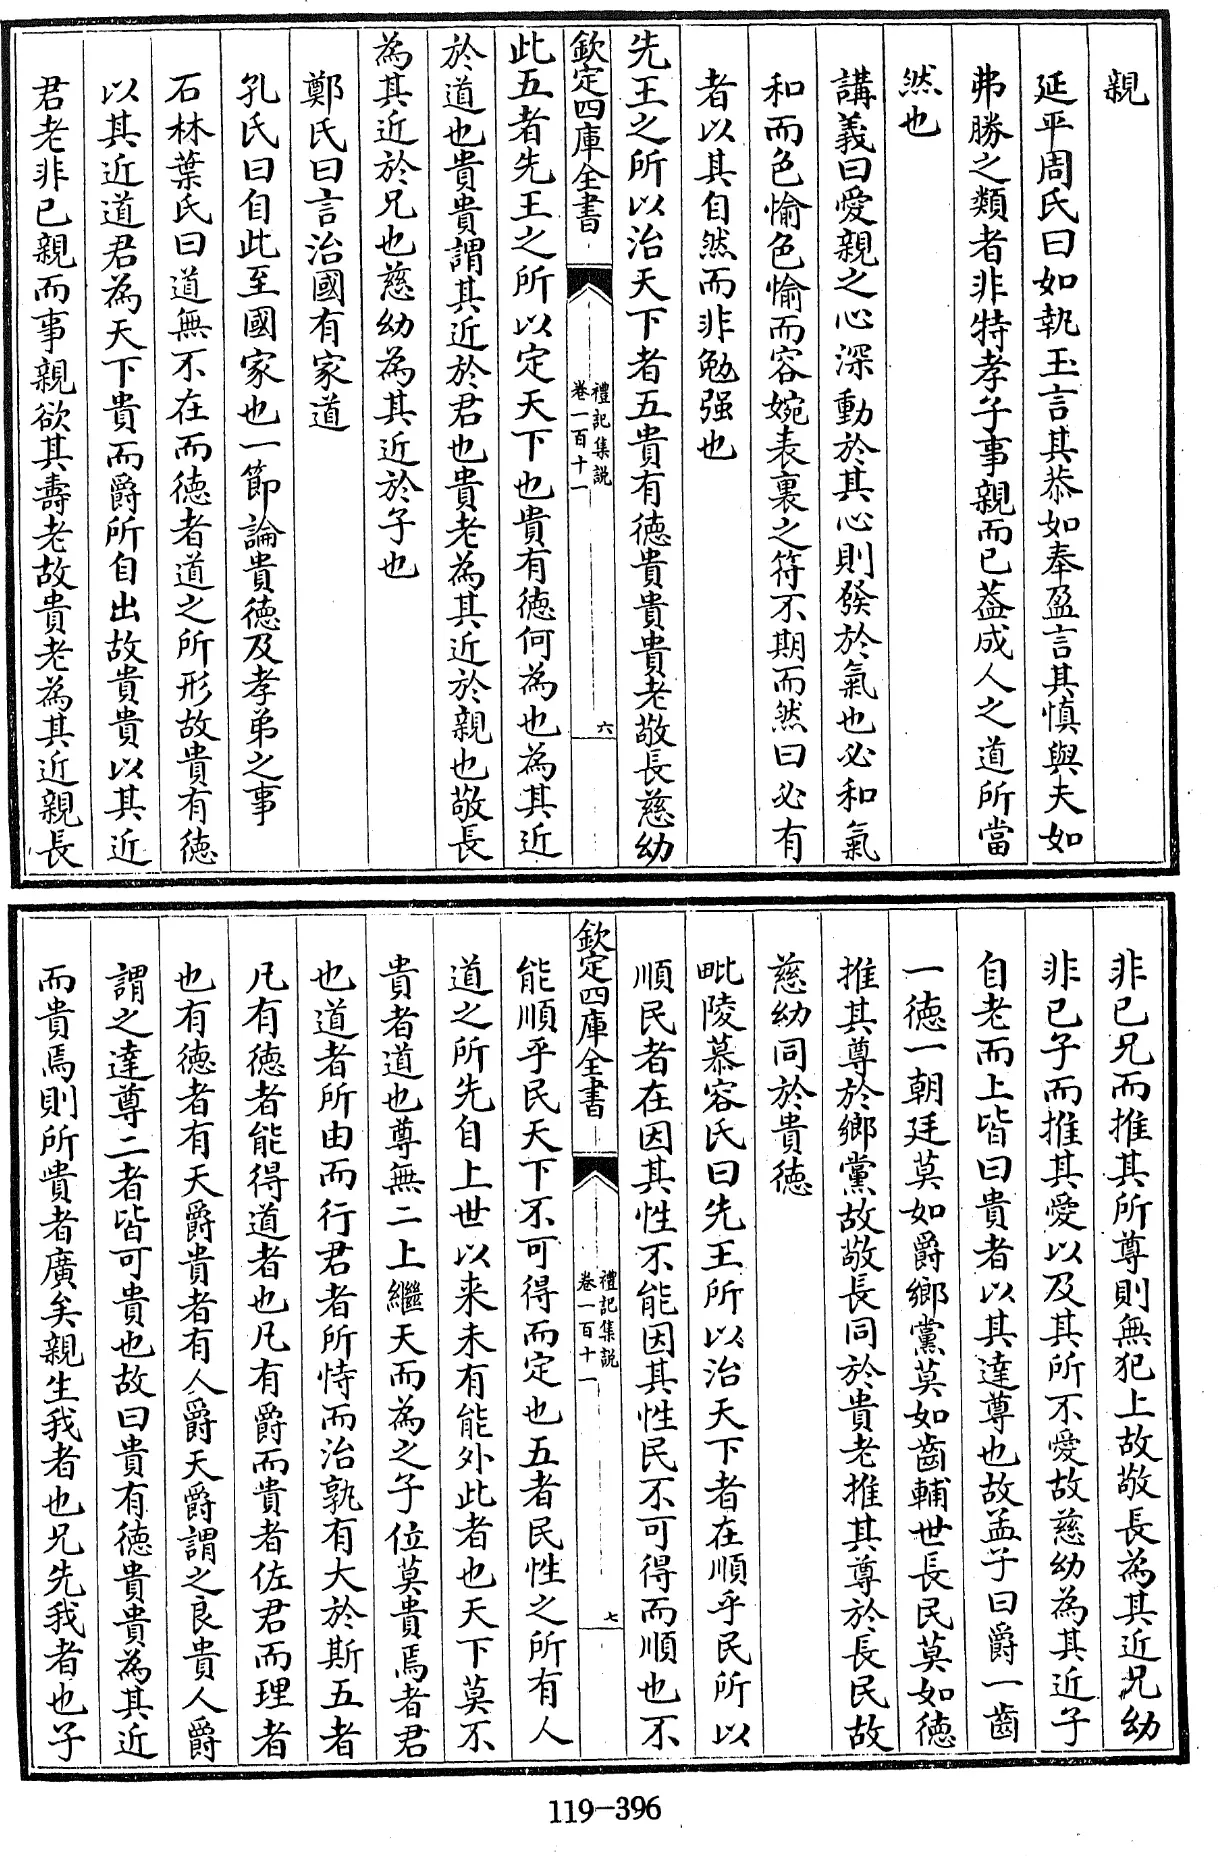 親
延平周氏曰如執玉言其恭如奉盈言其慎與夫如
弗勝之類者非特孝子事親而已葢成人之道所當
然也
講義曰愛親之心深動於其心則發於氣也必和氣
和而色愉色愉而容婉表裏之符不期而然曰必有
者以其自然而非勉强也
先王之所以治天下者五貴有徳貴貴貴老敬長慈幼
欽定四庫全書
禮記集說
卷一百十一
六
此五者先王之所以定天下也貴有徳何為也為其近
於道也貴貴謂其近於君也貴老為其近於親也敬長
為其近於兄也慈幼為其近於子也
鄭氏曰言治國有家道
孔氏曰自此至國家也一節論貴徳及孝弟之事
石林葉氏曰道無不在而徳者道之所形故貴有徳
以其近道君為天下貴而爵所自出故貴貴以其近
君老非已親而事親欲其壽老故貴老為其近親長
非已兄而推其所尊則無犯上故敬長為其近兄幼
非已子而推其愛以及其所不愛故慈幼為其近子
自老而上皆曰貴者以其達尊也故孟子曰爵一齒
一徳一朝廷莫如爵鄉黨莫如齒輔世長民莫如徳
推其尊於鄉黨故敬長同於貴老推其尊於長民故
慈幼同於貴徳
毗陵慕容氏曰先王所以治天下者在順乎民所以
順民者在因其性不能因其性民不可得而順也不
欽定四庫全書
禮記集說
卷一百十一
七
能順乎民天下不可得而定也五者民性之所有人
道之所先自上世以来未有能外此者也天下莫不
貴者道也尊無二上繼天而為之子位莫貴焉者君
也道者所由而行君者所恃而治孰有大於斯五者
凡有徳者能得道者也凡有爵而貴者佐君而理者
也有徳者有天爵貴者有人爵天爵謂之良貴人爵
謂之達尊二者皆可貴也故曰貴有徳貴貴為其近
而貴焉則所貴者廣矣親生我者也兄先我者也子
119-396